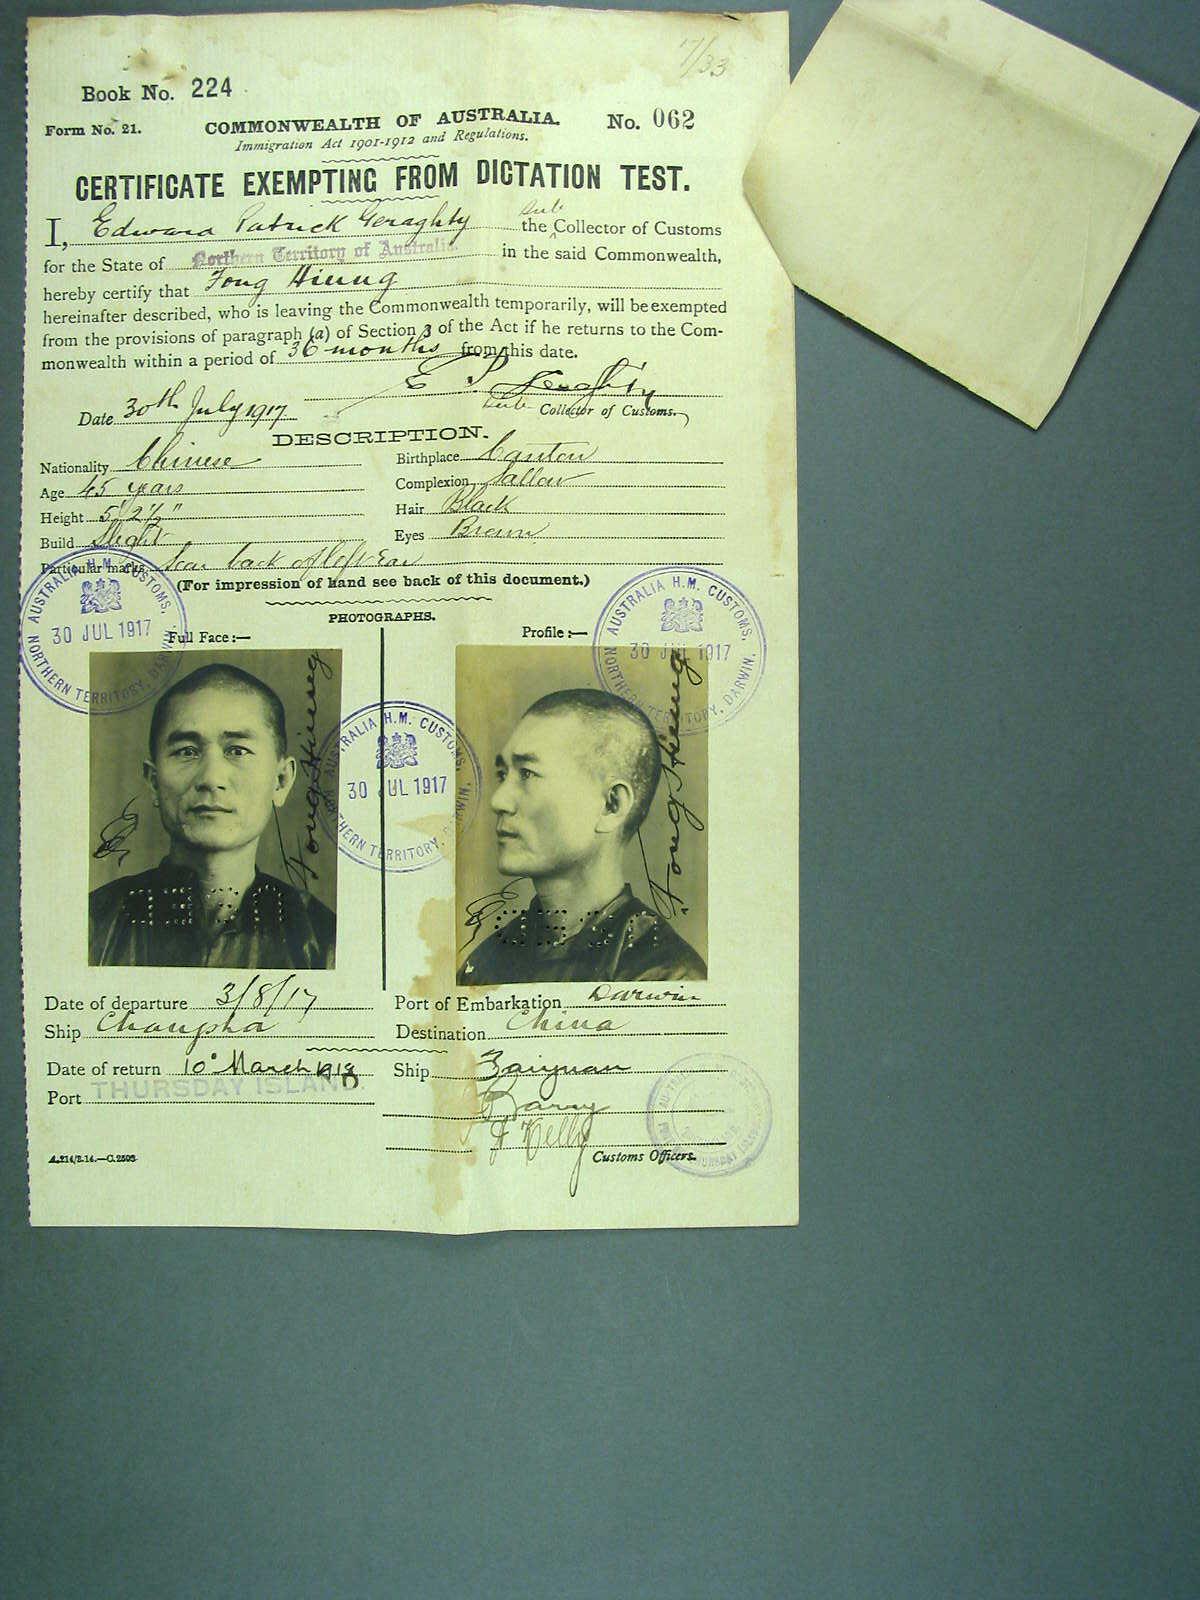 7/33
Book No. 224
Form No. 21. COMMONWEALTH OF AUSTRALIA. No. 062
Immigration Act 1901-1912 and Regulations.
CERTIFICATE EXEMPTING FROM DICTATION TEST.
I, Edward Patrick Geraghty the Sub Collector of Customs
for the State of Northern Territory of Australia. in the said Commonwealth,
hereby certify that Fong Hieng
hereinafter described, who is leaving the Commonwealth temporarily, will be exempted
from the provisions of paragraph (a) of Section 3 of the Act if he returns to the Com-
monwealth within a period of 36 months from this date.
E P Geraghty
Date 30th July 1917 Sub Collector of Customs.
DESCRIPTION.
Nationality Chinese Birthplace Canton
Age 45 years Complexion Sallow
Height 5' 2½" Hair Black
Build Slight Eyes Brown
Particular marks Scar back of left Ear
(For impression of hand see back of this document.)
PHOTOGRAPHS.
Full Face:— Profile:—
AUSTRALIA H.M. CUSTOMS, 30 JUL 1917 NORTHERN TERRITORY, DARWIN.
AUSTRALIA H.M. CUSTOMS, 30 JUL 1917 NORTHERN TERRITORY, DARWIN.
AUSTRALIA H.M. CUSTOMS, 30 JUL 1917 NORTHERN TERRITORY, DARWIN.
Fong Hieng
Fong Hieng
Date of departure 3/8/17 Port of Embarkation Darwin
Ship Changsha Destination China
Date of return 10 March 1918 Ship Taiyuan
Port THURSDAY ISLAND.
Barry
Kelly
A.214/2.14.—C.2593. Customs Officers.